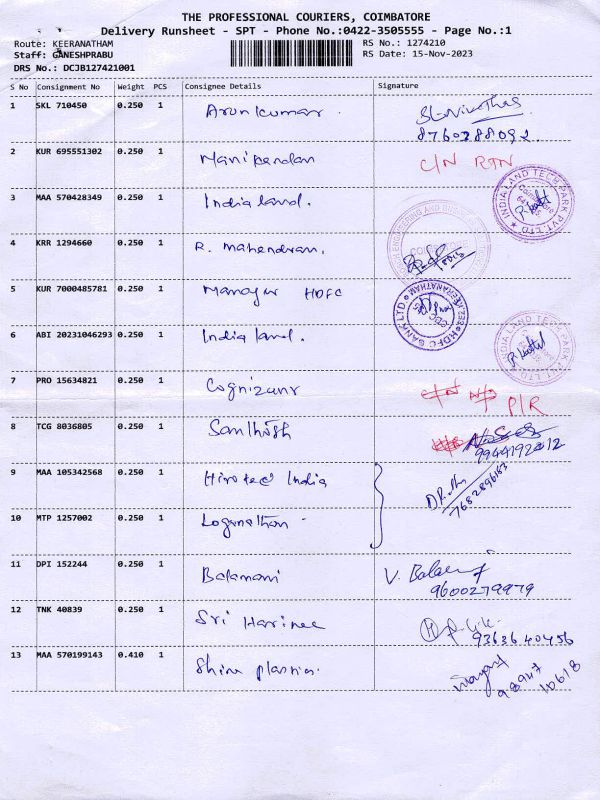 THE PROFESSIONAL COURIERS, COIMBATORE
Delivery Runsheet - SPT - Phone No.:0422-3505555 - Page No.:1
Route: KEERANATHAM
RS No.: 1274210
Staff: GANESHPRABU
RS Date: 15-Nov-2023
DRS No.: DCJB127421001
S No Consignment No Weight PCS Consignee Details Signature
1 SKL 710450 0.250 1 Arunkumar.
8760288092.
2 KUR 695551302 0.250 1 Manikandan C/N RTN
3 MAA 570428349 0.250 1 India land.
INDIA LAND TECH PARK PVT. LTD
4 KRR 1294660 0.250 1 R. Mahendran.
5 KUR 7000485781 0.250 1 Manager HDFC
HDFC BANK LTD KEERANATHAM
6 ABI 20231046293 0.250 1 India land.
INDIA LAND TECH PARK PVT. LTD
7 PRO 15634821 0.250 1 Cognizant P/R
8 TCG 8036805 0.250 1 Santhosh
9 MAA 105342568 0.250 1 Hirotec India
7682896183
10 MTP 1257002 0.250 1 Loganathan
11 DPI 152244 0.250 1 Balamani V.
9600279979
12 TNK 40839 0.250 1 Sri Harinee
9363640456
13 MAA 570199143 0.410 1 Shine plastics.
98947 10618